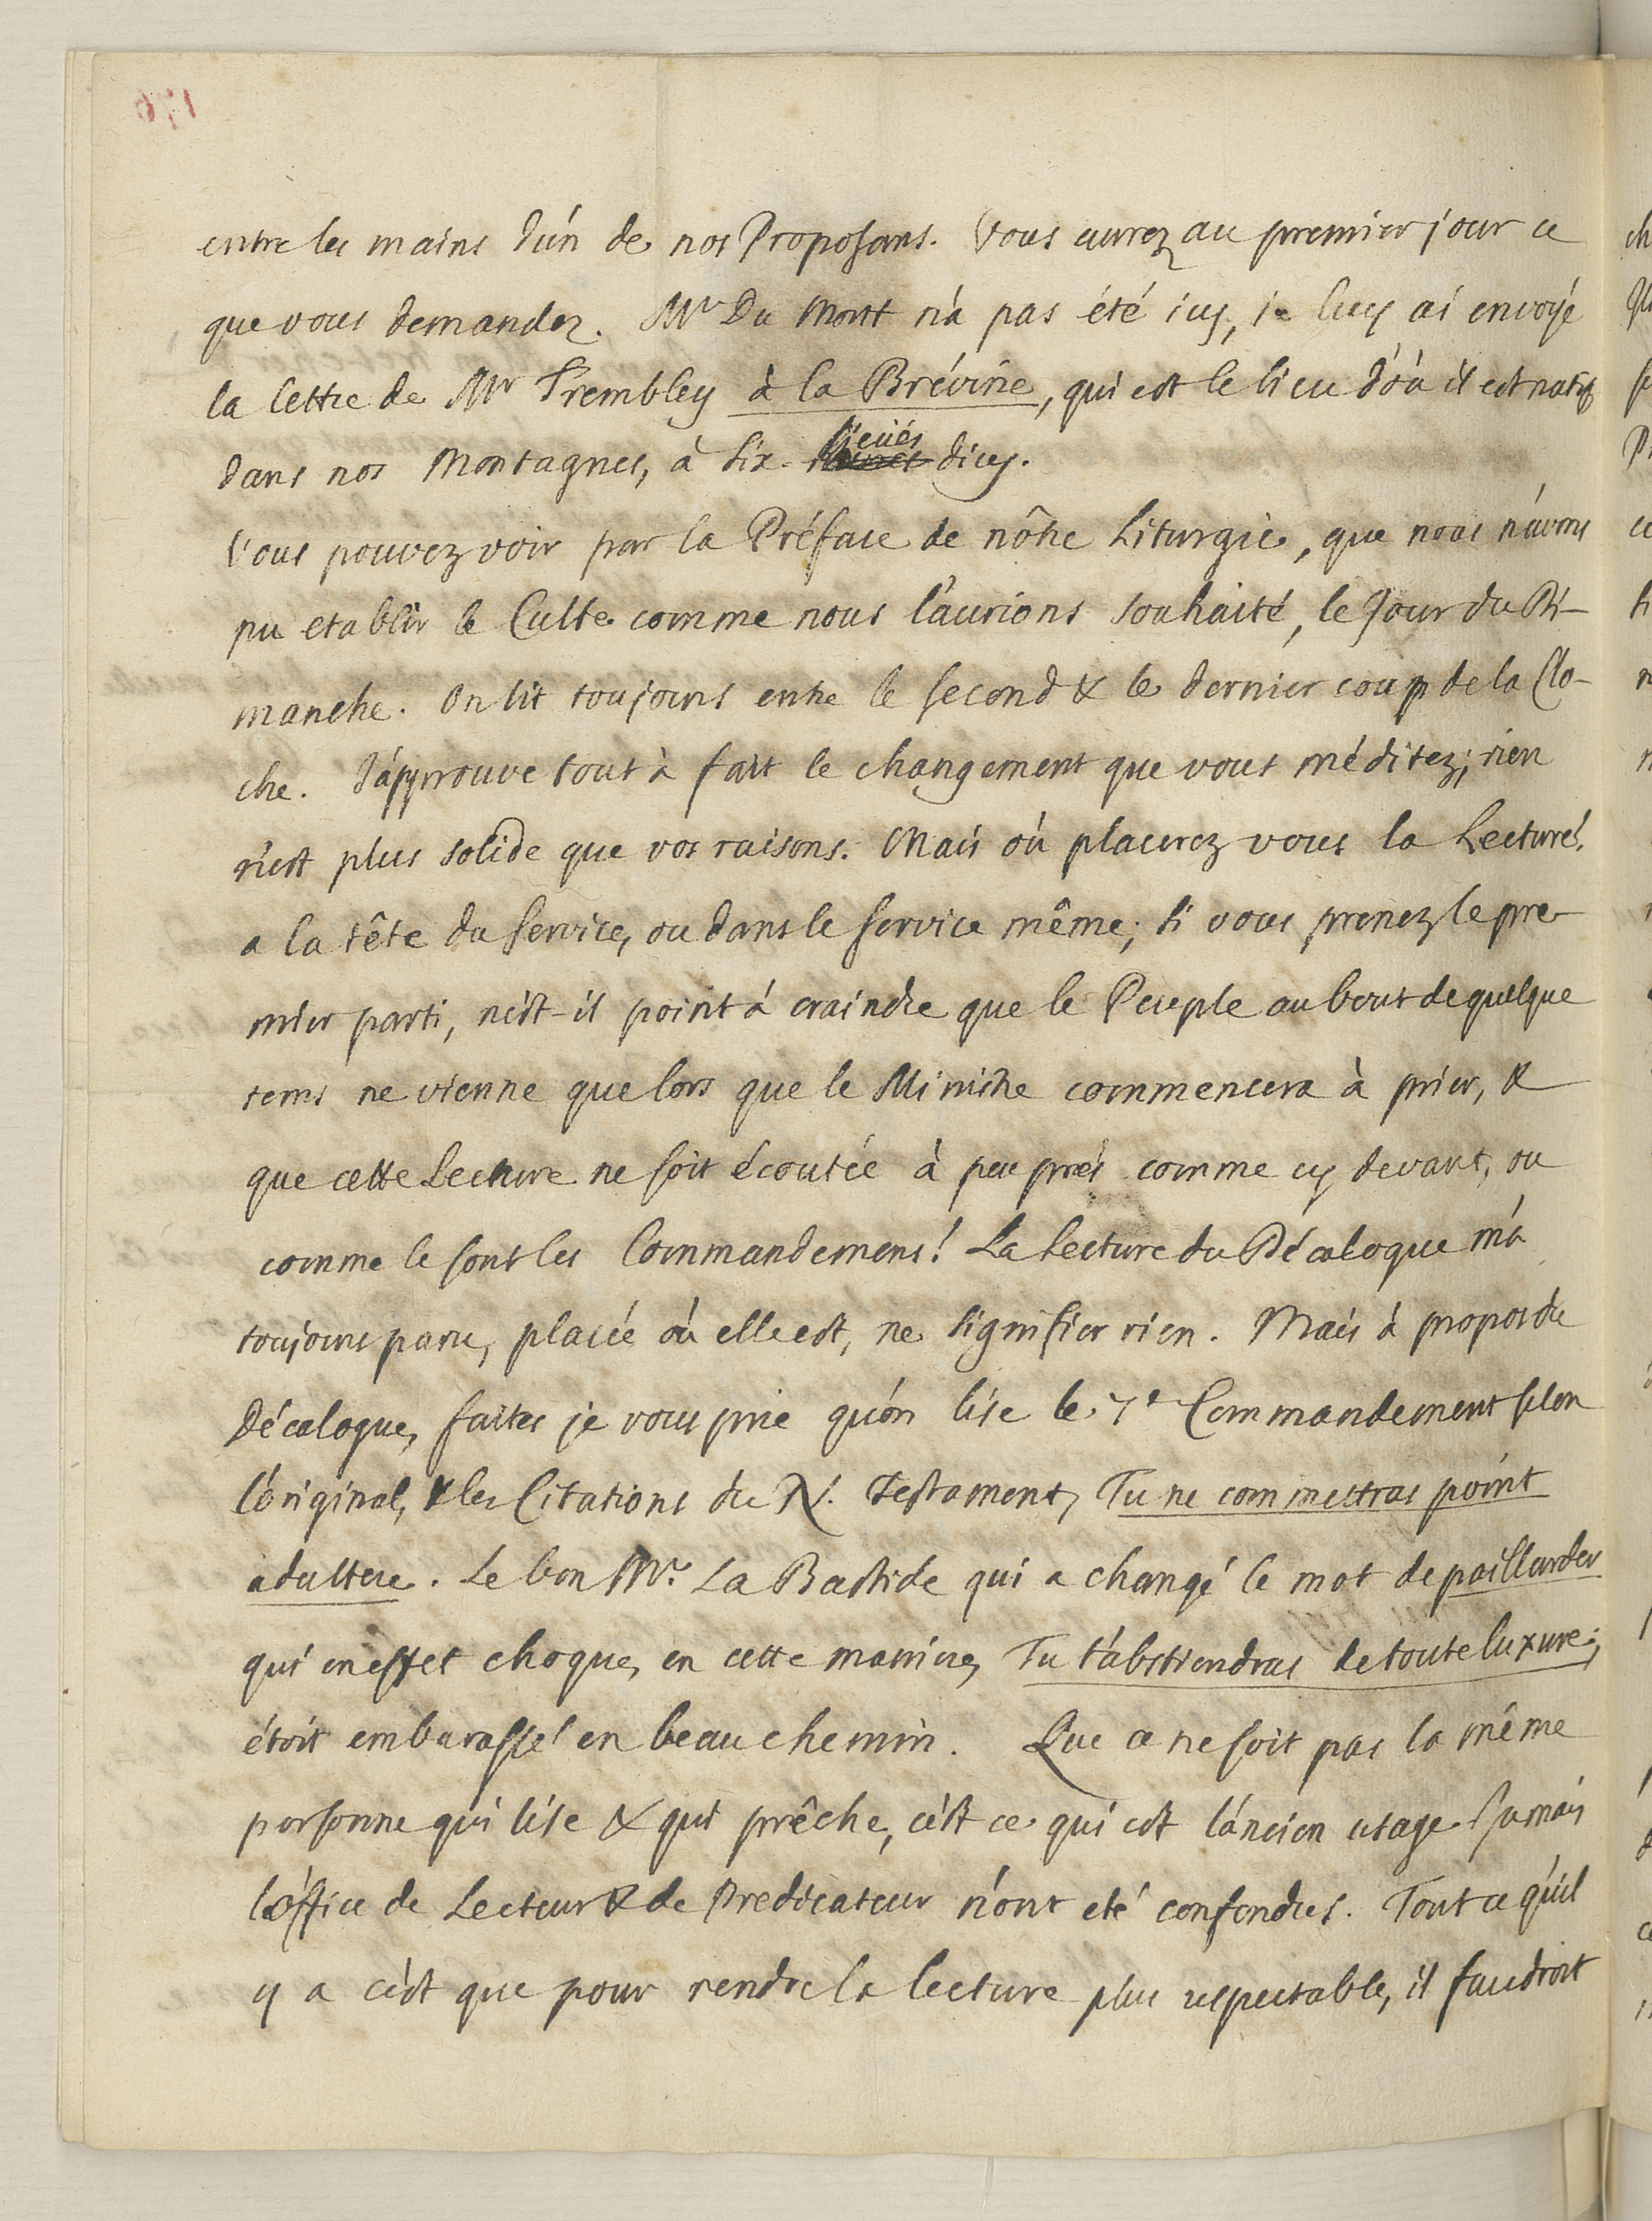 entre les mains d'un de nos Proposans. Vous aurez au premier jour ce
que vous demandez. Mr Du Mont n'a pas été icy, je luy ai envoyé
la lettre de Mr Trembley à la Brévine, qui est le lieu d'où il est natif
dans nos Montagnes, à six lieües d'icy.
Vous pouvez voir par la Préface de nôtre Liturgie, que nous n'avons
pu etablir le Culte comme nous l'aurions souhaité, le Jour du Di-
manche. On lit toujours entre le second & le dernier coup de la Clo-
che. J'approuve tout à fait le changement que vous méditez; rien
n'est plus solide que vos raisons. Mais où placerez vous la Lecture!
a la tête du Service, ou dans le Service même; si vous prenez le pre-
mier parti, n'est-il point à craindre que le Peuple au bout de quelque
tems ne vienne que lors que le Ministre commencera à prier, &
que cette Lecture ne soit écoutée à peu près comme cy devant, ou
comme le sont les Commandemens! La Lecture du Décalogue m'a
toujours paru, placée où elle est, ne signifier rien. Mais à propos du
Décalogue, faites je vous prie qu'on lise le 7e Commandement selon
l'original, & les Citations du N. Testament, Tu ne commettras point
adultere. Le bon Mr. La Bastide qui a changé le mot de paillarder
qui en effet choque, en cette maniere, Tu t'abstiendras de toute luxure;
étoit embarassé en beau chemin. Que ce ne soit pas la même
personne qui lise & qui prêche, c'est ce qui est l'ancien usage. Jamais
l'office de Lecteur & de Predicateur n'ont eté confondus. Tout ce qu'il
y a c'est que pour rendre la lecture plus respectable, il faudroit